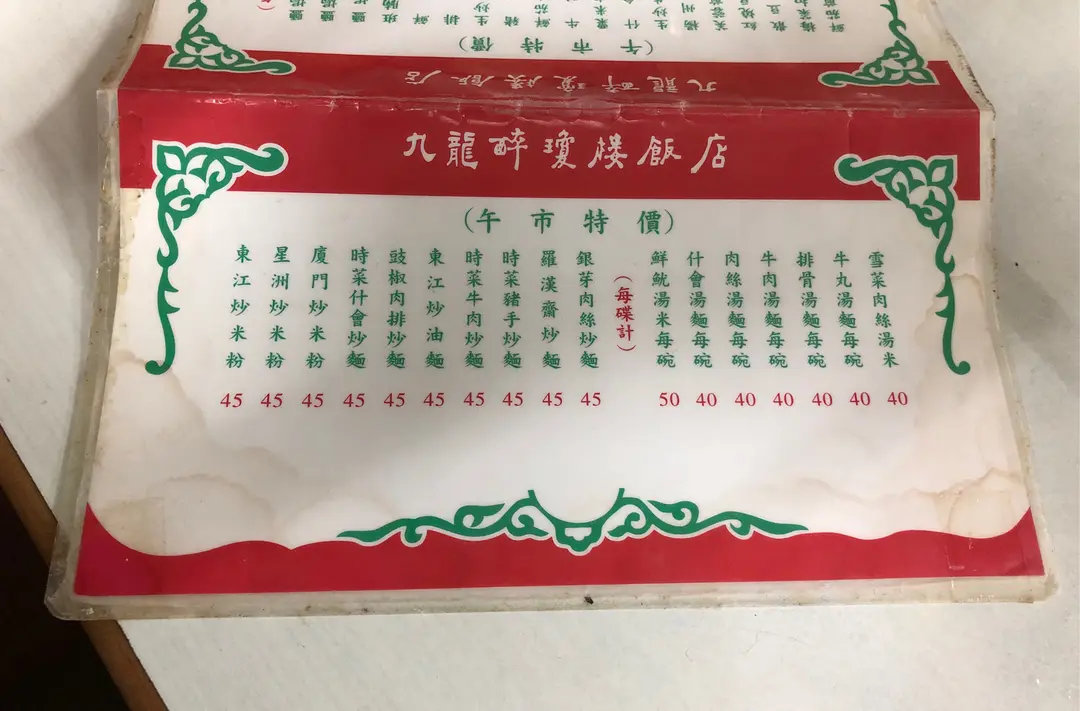 九龍醉瓊樓飯店
(午市特價)
九龍醉瓊樓飯店
(午市特價)
雪菜肉絲湯米 40
牛丸湯麵每碗 40
排骨湯麵每碗 40
牛肉湯麵每碗 40
肉絲湯麵每碗 40
什會湯麵每碗 40
鮮魷湯米每碗 50
(每碟計)
銀芽肉絲炒麵 45
羅漢齋炒麵 45
時菜豬手炒麵 45
時菜牛肉炒麵 45
東江炒油麵 45
豉椒肉排炒麵 45
時菜什會炒麵 45
廈門炒米粉 45
星洲炒米粉 45
東江炒米粉 45